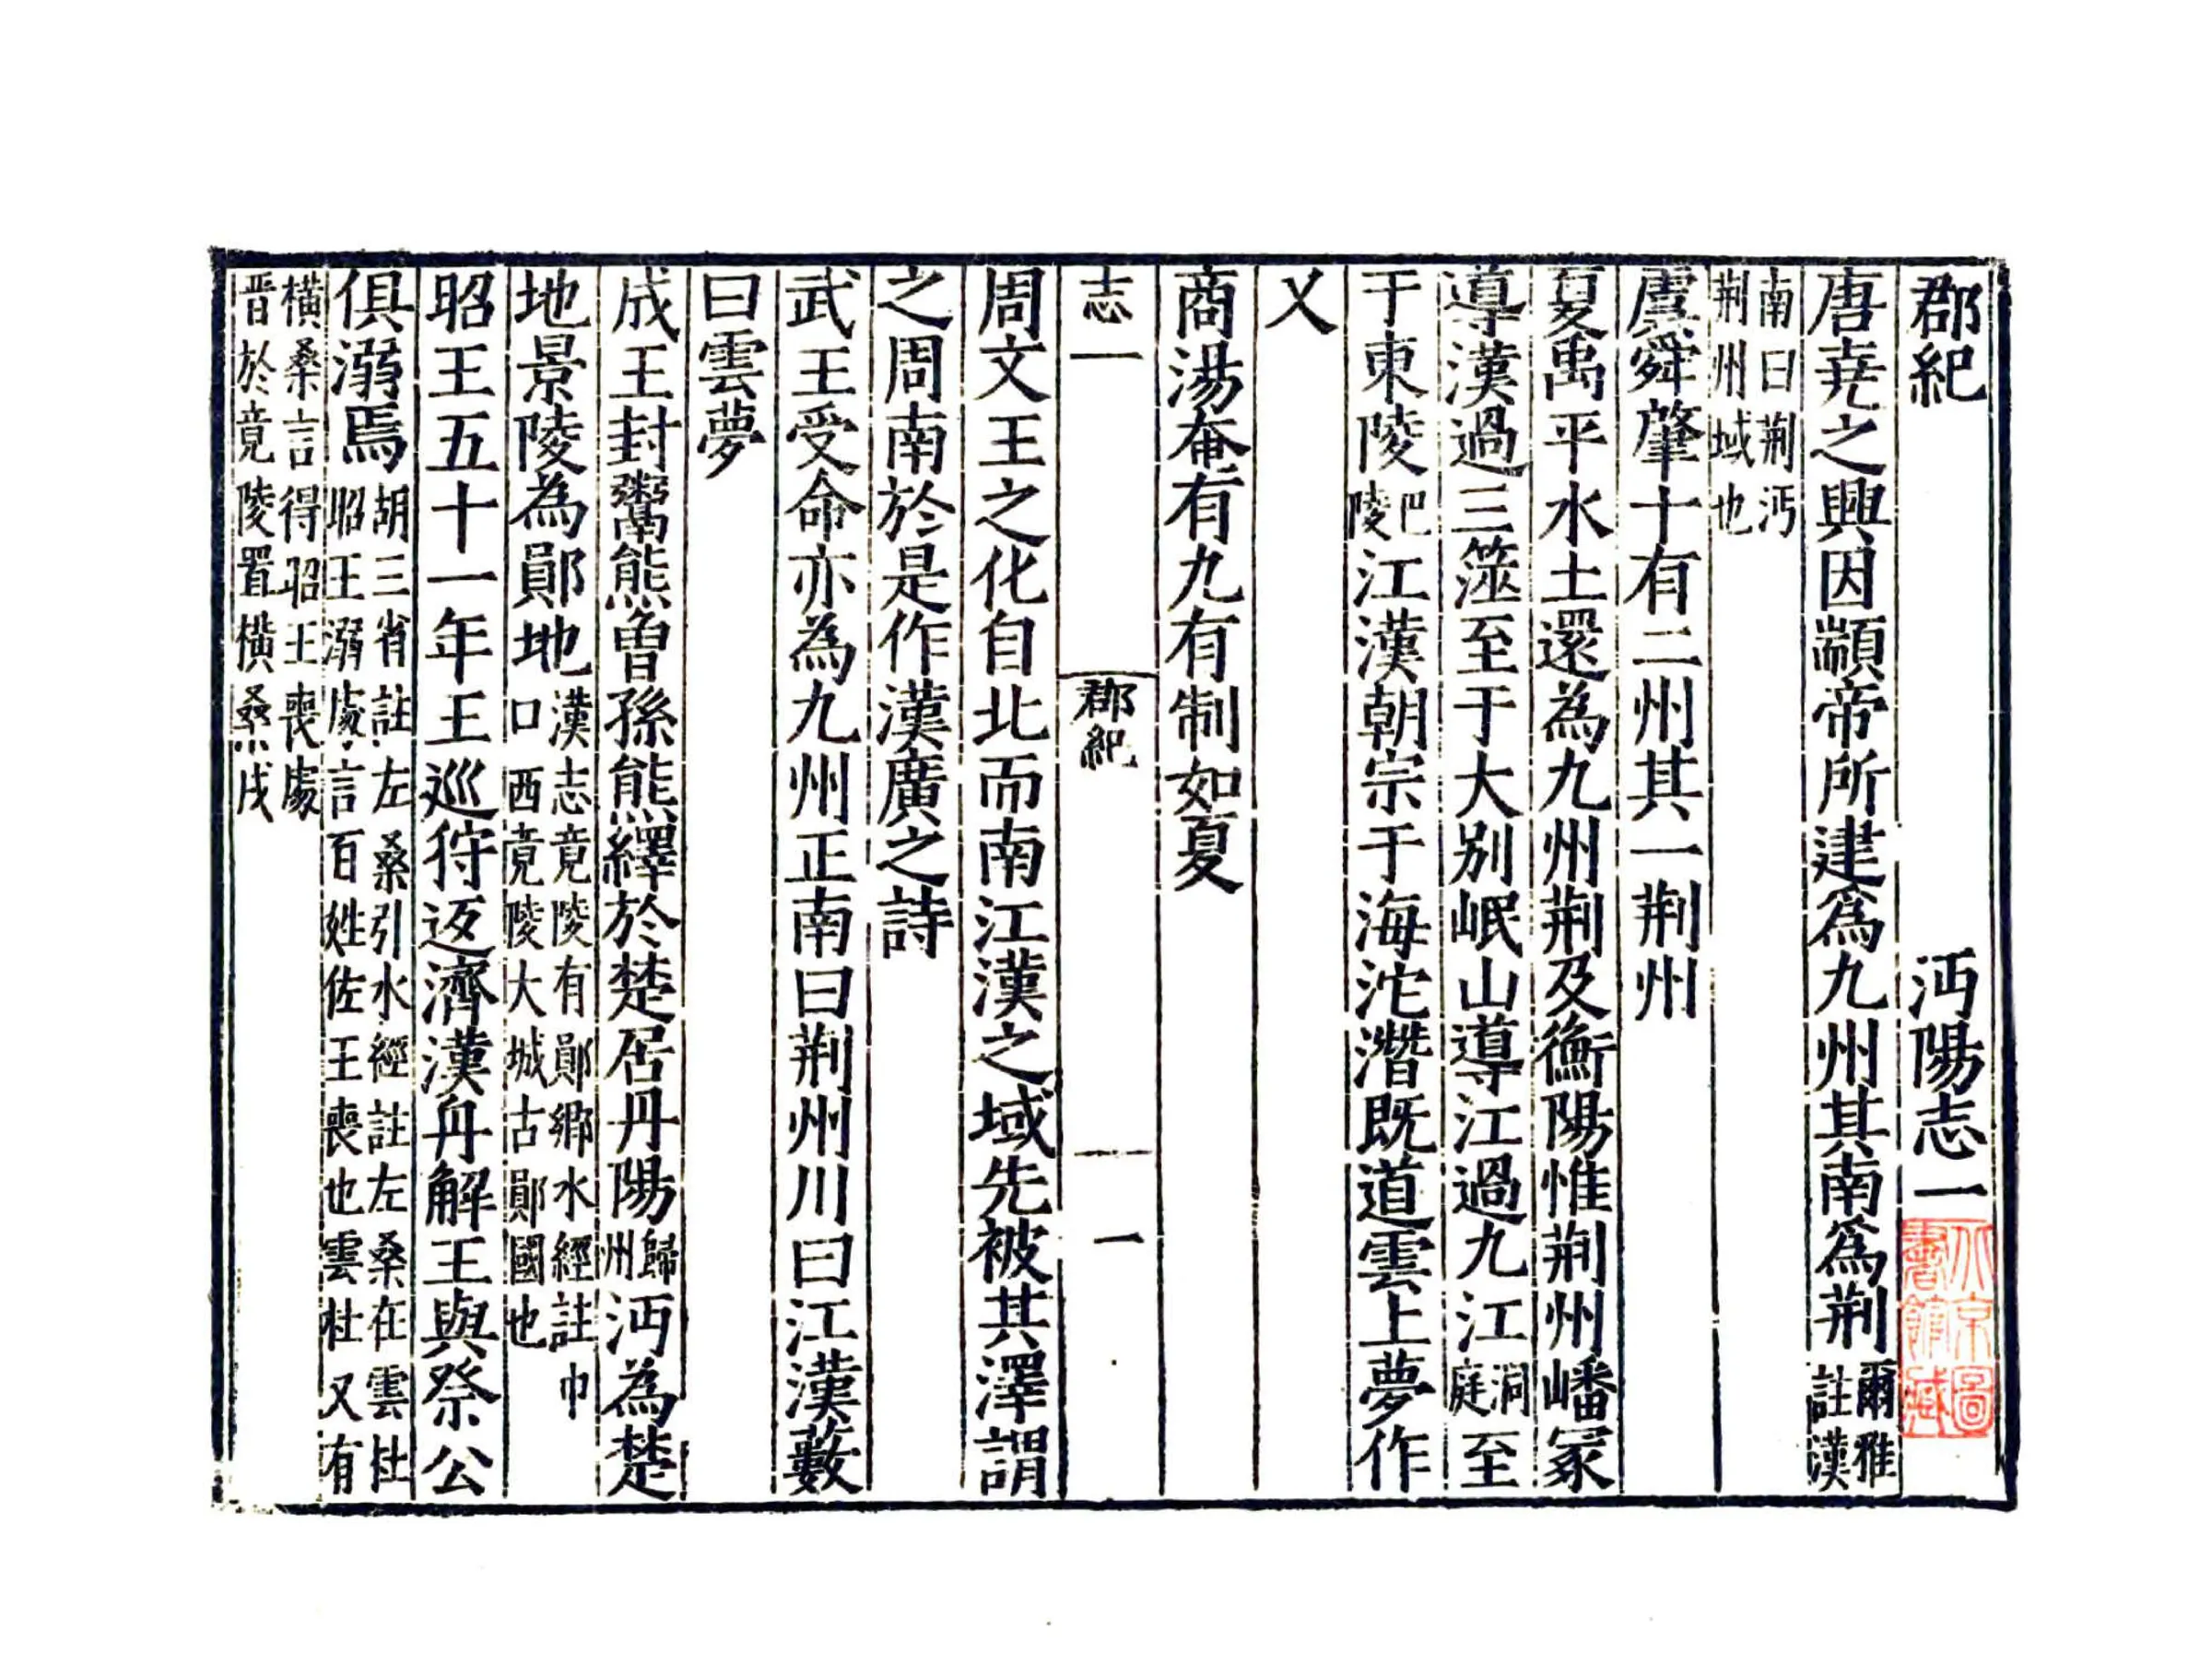 郡紀 沔陽志一
北京圖書館藏
唐堯之興因顓帝所建爲九州其南爲荆爾雅註漢
南曰荆沔荆州域也
虞舜肇十有二州其一荆州
夏禹平水土還為九州荆及衡陽惟荆州嶓冢
導漢過三澨至于大别岷山導江過九江洞庭至
于東陵巴陵江漢朝宗于海沱潛既道雲土夢作
乂
商湯奄有九有制如夏
志一 郡紀 一
周文王之化自北而南江漢之域先被其澤謂
之周南於是作漢廣之詩
武王受命亦為九州正南曰荆州川曰江漢藪
曰雲夢
成王封鬻熊曾孫熊繹於楚居丹陽歸州沔為楚
地景陵為鄖地漢志竟陵有鄖鄉水經註巾口西竟陵大城古鄖國也
昭王五十一年王巡狩返濟漢舟解王與祭公
俱溺焉胡三省註左桑引水經註左桑在雲杜昭王溺處言百姓佐王喪也雲杜又有
横桑言得昭王喪處晋於竟陵置横桑戍